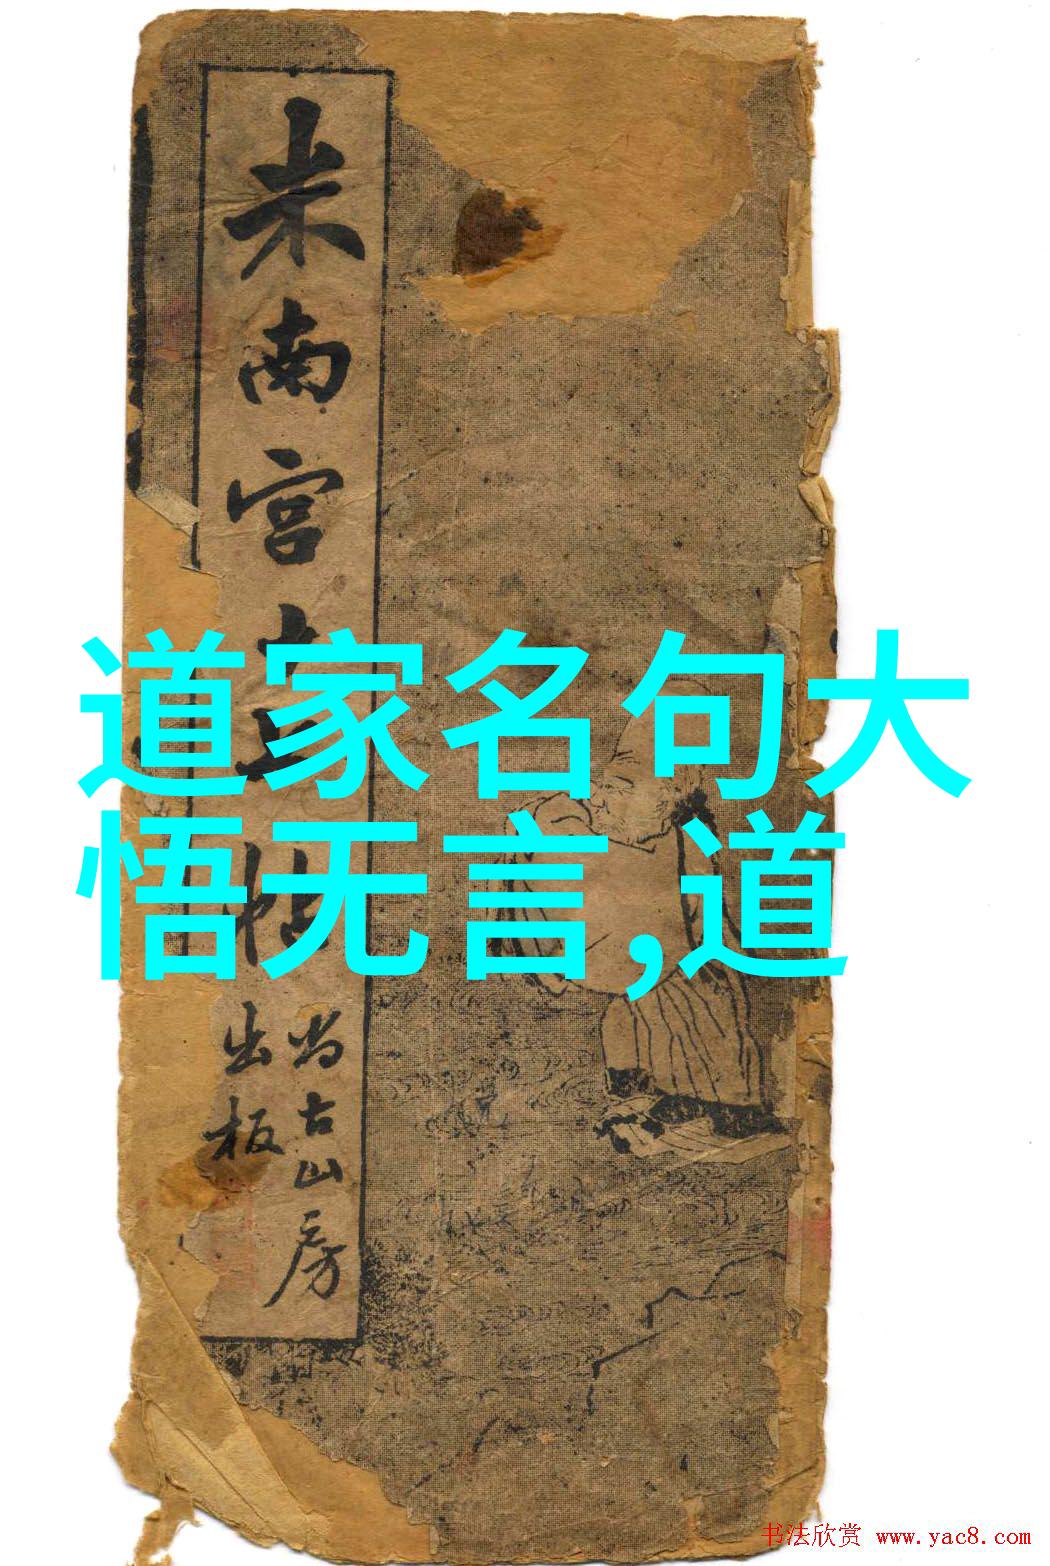 米南宫
帖
尚古山房
出板
道家名句大
悟无言,道
书法欣赏 www.yac8.com